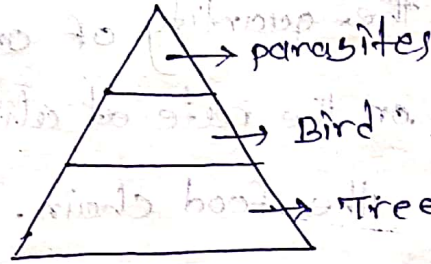 parasites
Bird
Tree